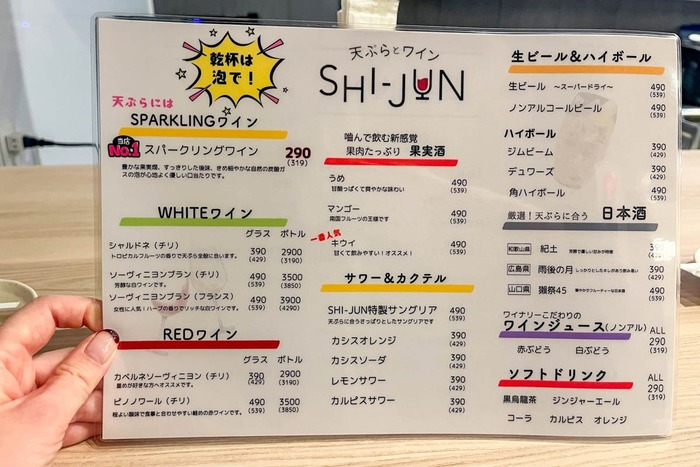 乾杯は
泡で!
天ぷらには
SPARKLINGワイン
当店
No.1
スパークリングワイン 290
(319)
豊かな果実感、すっきりした後味、きめ細やかな自然の炭酸ガ
スの泡が心地よく優しい口当たりです。
WHITEワイン
グラス ボトル
シャルドネ(チリ) 390 2900
トロピカルフルーツの香りで天ぷら全般に合います。 (429) (3190)
ソーヴィニヨンブラン(チリ) 490 3500
芳醇な白ワインです。 (539) (3850)
ソーヴィニヨンブラン(フランス) 490 3900
女性に人気!ハーブの香りでリッチな白ワインです。 (539) (4290)
REDワイン
グラス ボトル
カベルネソーヴィニヨン(チリ) 390 2900
重めが好きな方へオススメです。 (429) (3190)
ピノノワール(チリ) 490 3500
程よい酸味で食事と合わせやすい軽めの赤ワインです。 (539) (3850)
天ぷらとワイン
SHI-JUN
噛んで飲む新感覚
果肉たっぷり 果実酒
うめ 490
甘酸っぱくて爽やかな味わい (539)
マンゴー 490
南国フルーツの王様です (539)
一番人気
キウイ 490
甘くて飲みやすい!オススメ! (539)
サワー&カクテル
SHI-JUN特製サングリア 490
天ぷらに合うさっぱりとしたサングリアです (539)
カシスオレンジ 390
(429)
カシスソーダ 390
(429)
レモンサワー 390
(429)
カルピスサワー 390
(429)
生ビール&ハイボール
生ビール ~スーパードライ~ 490
(539)
ノンアルコールビール 490
(539)
ハイボール
ジムビーム 390
(429)
デュワーズ 390
(429)
角ハイボール 490
(539)
厳選!天ぷらに合う 日本酒
和歌山県 紀土 芳醇で優しい甘みが特徴
広島県 雨後の月 しっかりとしたキレがあり飲み易い 390
(429)
山口県 獺祭45 華やかでフルーティーな日本酒 490
(539)
ワイナリーこだわりの
ワインジュース(ノンアル) ALL
赤ぶどう 白ぶどう 290
(319)
ソフトドリンク ALL
黒烏龍茶 ジンジャーエール 290
(319)
コーラ カルピス オレンジ